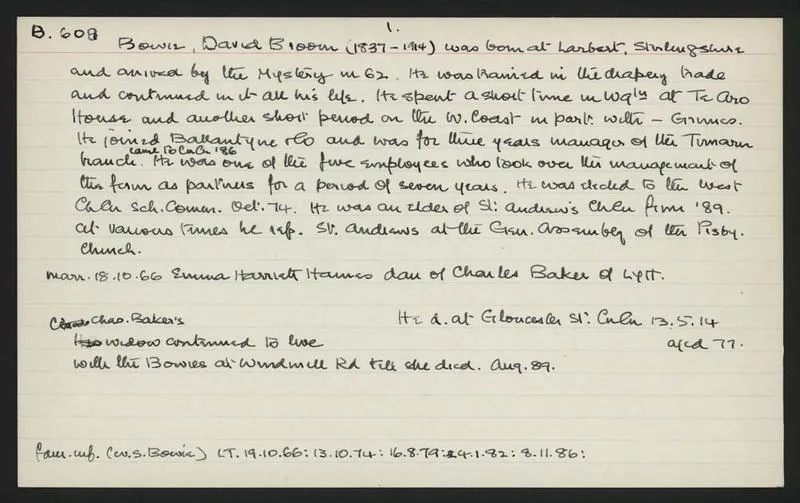 1.
B. 608
Bowie, David Broom (1837-1914) was born at Larbert, Stirlingshire
and arrived by the Mystery in 62. He was trained in the drapery trade
and continued in it all his life. He spent a short time in Wgtn at Te Aro
House and another short period on the W. Coast in partn. with – Grimes.
He joined Ballantyne & Co and was for three years manager of the Timaru
came to ChCh '86
branch. He was one of the five employees who took over the management of
the firm as partners for a period of seven years. He was elected to the West
ChCh Sch. Comm. Oct. 74. He was an elder of St. Andrew's ChCh from '89.
At various times he rep. St. Andrews at the Gen. Assembly of the Presby.
Church.
marr. 18.10.66 Emma Harriett Hames dau of Charles Baker of Lytt.
Chas. Baker's
He d. at Gloucester St. ChCh 13.5.14
widow continued to live
aged 77.
with the Bowies at Windmill Rd till she died. Aug. 89.
fam. inf. (W.S. Bowie) LT. 19.10.66: 13.10.74: 16.8.79: 24.1.82: 8.11.86: